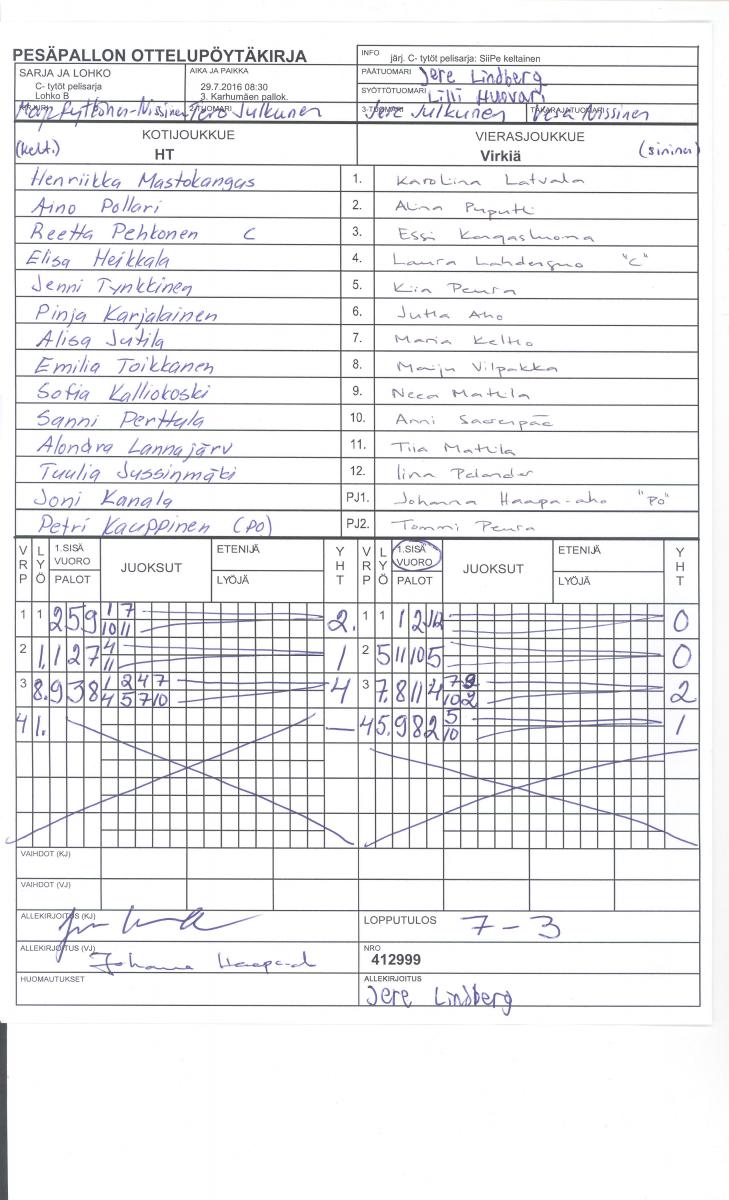 PESÄPALLON OTTELUPÖYTÄKIRJA
INFO järj. C- tytöt pelisarja: SiiPe keltainen
SARJA JA LOHKO
C- tytöt pelisarja
Lohko B
AIKA JA PAIKKA
29.7.2016 08:30
3. Karhumäen pallok.
PÄÄTUOMARI Jere Lindberg
SYÖTTÖTUOMARI Lilli Huovari
Pytkönen-Nissinen 2-TUOMARI Tero Julkunen 3-TUOMARI Jere Julkunen TAKARAJATUOMARI Vesa Nissinen
KOTIJOUKKUE VIERASJOUKKUE
(kelt.) HT Virkiä (sininen)
Henriikka Mastokangas 1. Karolina Latvala
Aino Pollari 2. Alina Puputti
Reetta Pehkonen C 3. Essi Kangasluoma
Elisa Heikkala 4. Laura "C"
Jenni Tynkkinen 5. Kiia Peura
Pinja Karjalainen 6. Jutta Aho
Alisa Jutila 7. Maria Keltto
Emilia Toikkanen 8. Maiju Vilpakka
Sofia Kalliokoski 9. Neea Mattila
Sanni Perttula 10. Anni Saarenpää
Alondra Lannajärv 11. Tiia Mattila
Tuulia Jussinmäki 12. Iina Pelander
Joni Kanala PJ1. Johanna Haapa-aho "PO"
Petri Kauppinen (PO) PJ2. Tommi Peura
VRP LYÖ 1.SISÄ VUORO PALOT JUOKSUT ETENIJÄ LYÖJÄ YHT VRP LYÖ 1.SISÄ VUORO PALOT JUOKSUT ETENIJÄ LYÖJÄ YHT
1 1 2 5 9 1 7 2. 1 1 1 2 12 0
10 11
2 1. 1 2 7 4 1 2 5 11 10 5 0
11
3 8. 9 3 8 1 2 4 7 4 3 7. 8 11 4 7 9 2
4 5 7 10 10 2
4 1. — 4 5. 9 8 2 5 1
10
VAIHDOT (KJ)
VAIHDOT (VJ)
ALLEKIRJOITUS (KJ) LOPPUTULOS 7 - 3
ALLEKIRJOITUS (VJ) Johanna NRO
412999
HUOMAUTUKSET ALLEKIRJOITUS
Jere Lindberg